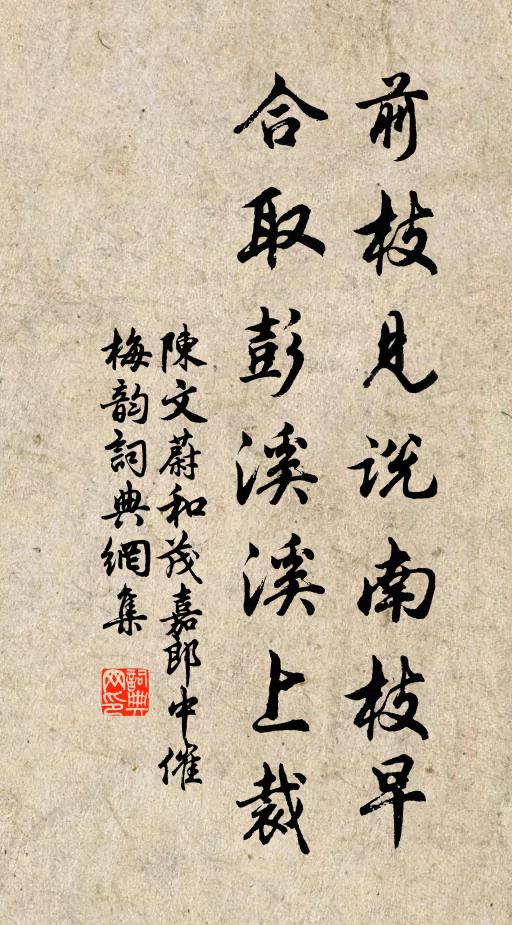 前枝見说南枝早
合取彭溪溪上裁
陳文蔚和茂嘉郎中催
梅韵詞典網集
詞典
网印